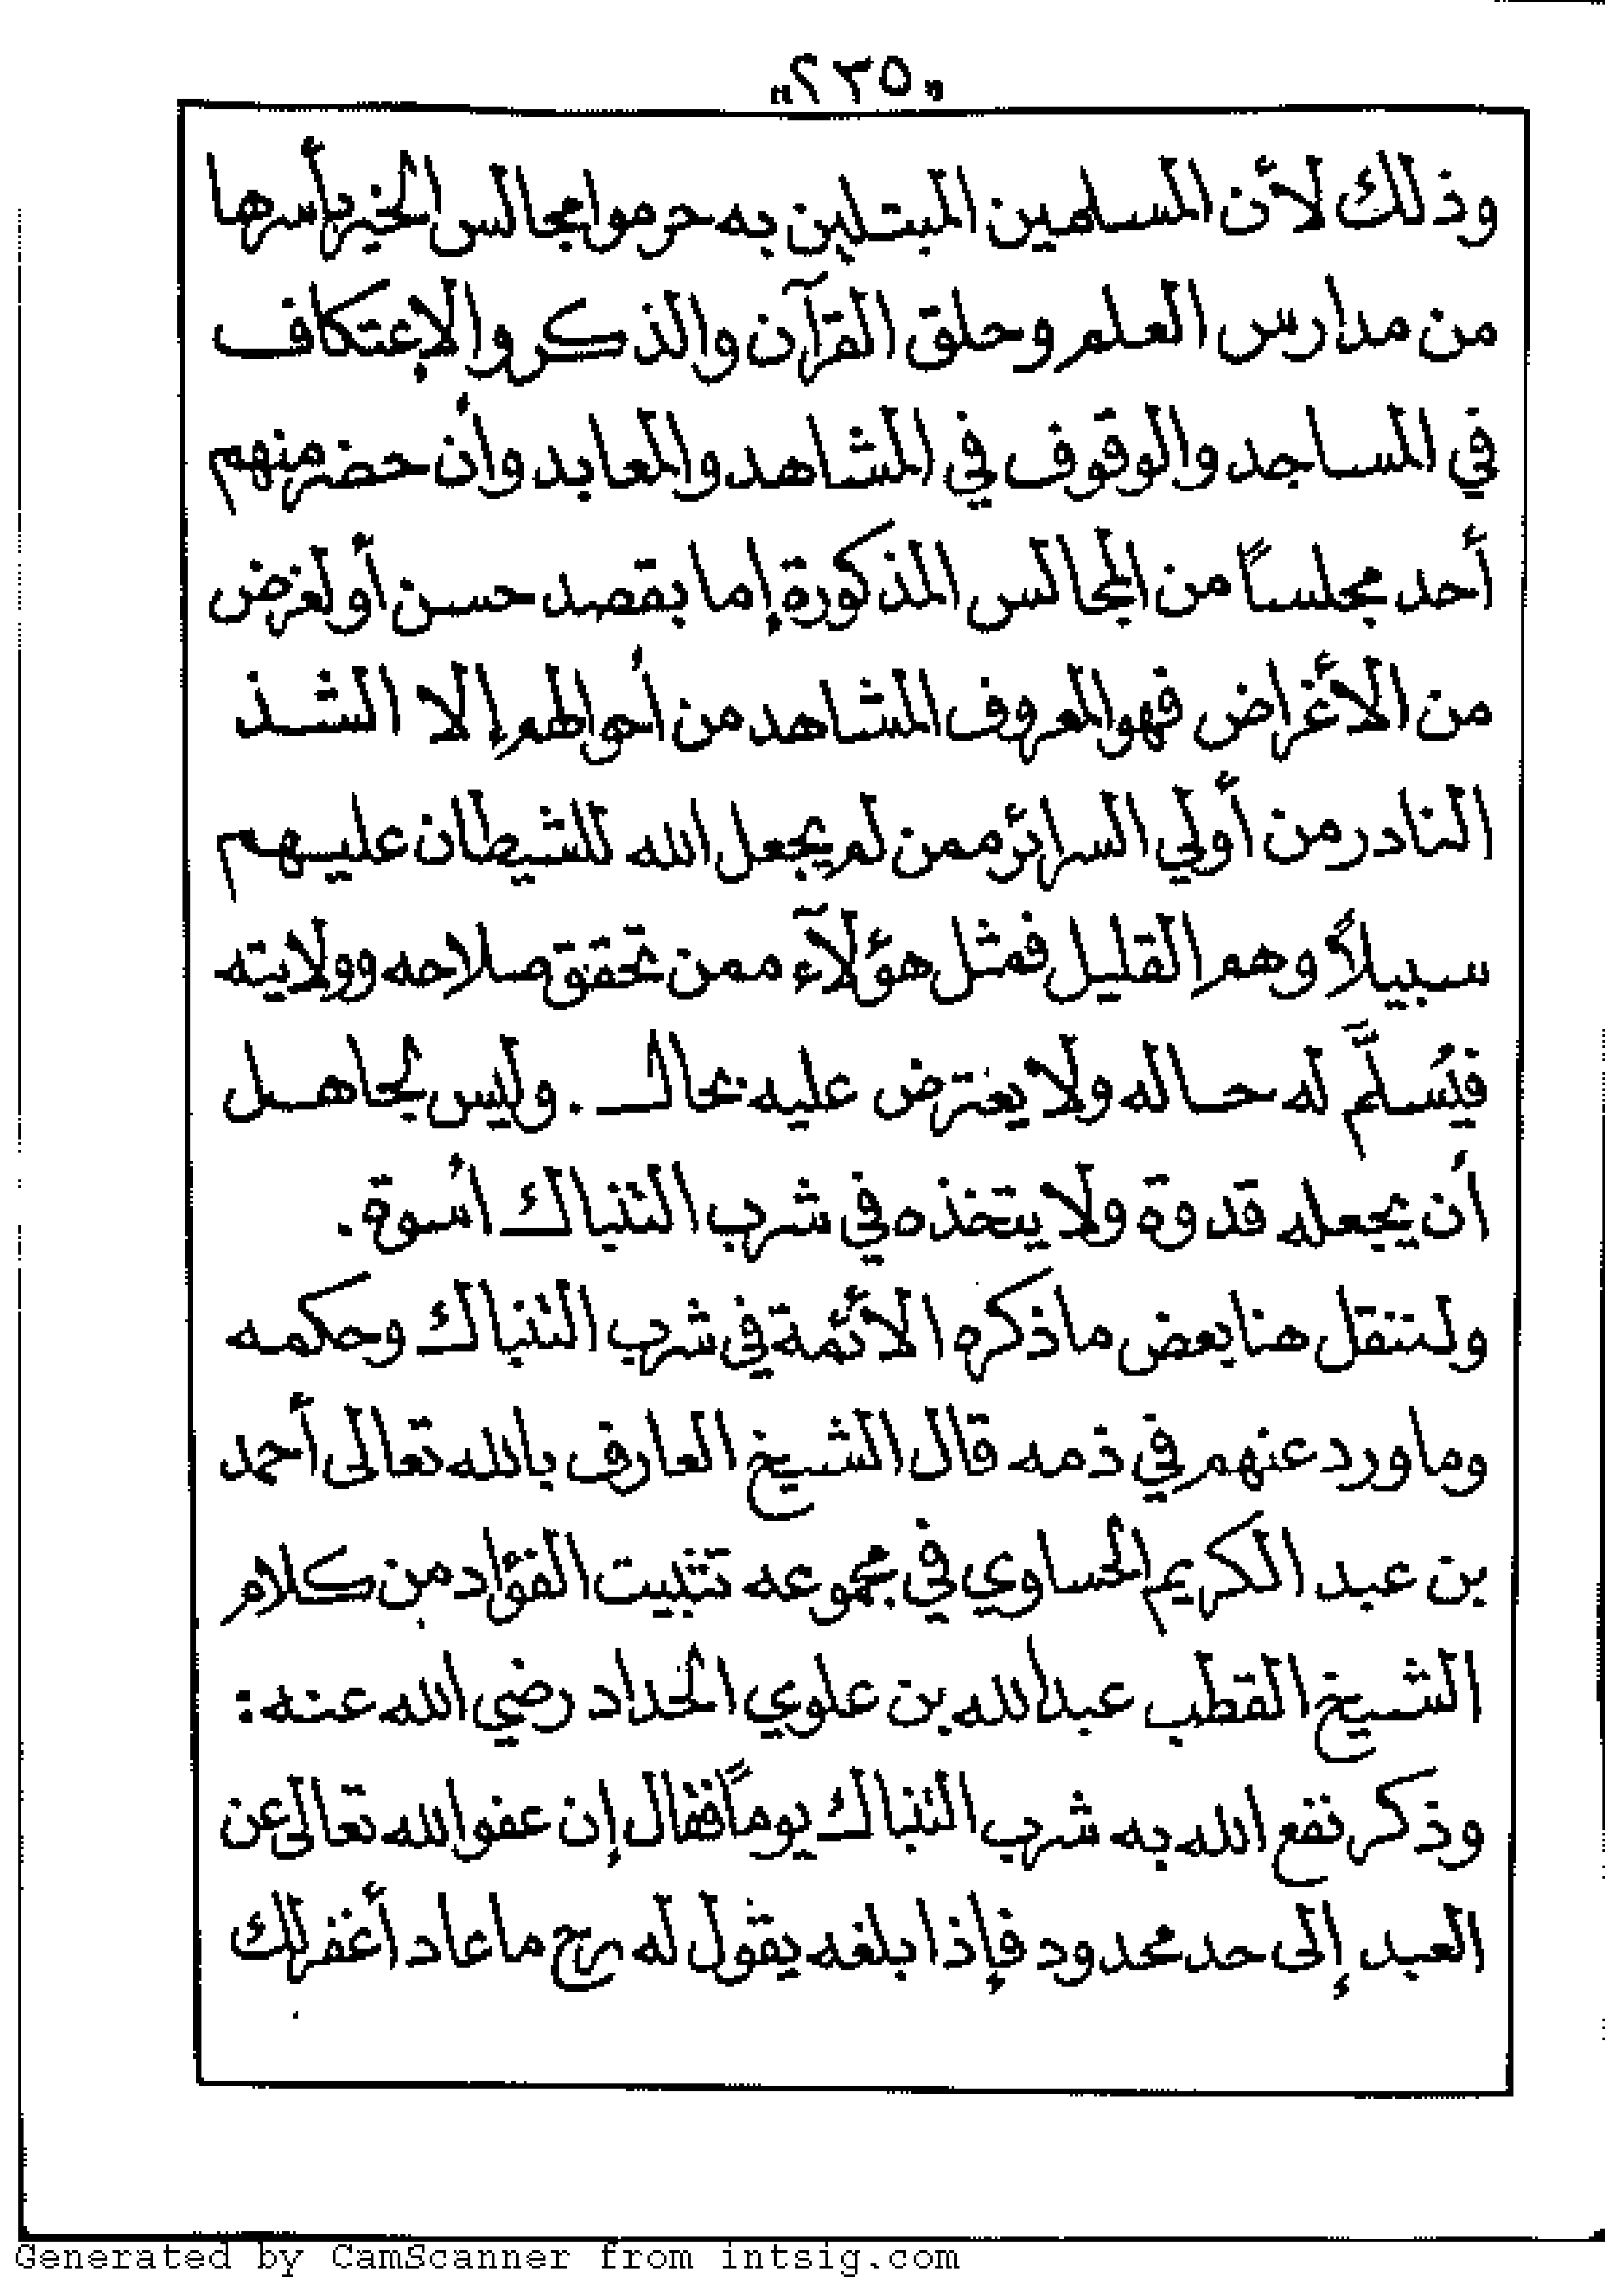 «٢٣٥»
وذلك لأن المسلمين المبتلين به حرموا مجالس الخير بأسرها
من مدارس العلم وحلق القرآن والذكر والإعتكاف
في المساجد والوقوف في المشاهد والمعابد وأن حضر منهم
أحد مجلساً من المجالس المذكورة إما بقصد حسن أو لغرض
من الأغراض فهو المعروف المشاهد من أحوالهم إلا الشذ
النادر من أولي السرائر ممن لم يجعل الله للشيطان عليهم
سبيلاً وهم القليل فمثل هؤلآء ممن تحقق صلاحه وولايته
فيُسلَّم له حاله ولا يعترض عليه بحال . وليس لجاهل
أن يجعله قدوة ولا يتخذه في شرب التنباك أسوة .
ولننقل هنا بعض ما ذكره الأئمة في شرب التنباك وحكمه
وما ورد عنهم في ذمه قال الشيخ العارف بالله تعالى أحمد
بن عبد الكريم الحساوي في مجموعه تثبيت الفؤاد من كلام
الشيخ القطب عبدالله بن علوي الحداد رضي الله عنه :
وذكر نفع الله به شرب التنباك يوماً فقال إن عفو الله تعالى عن
العبد إلى حد محدود فإذا بلغه يقول له رح ما عاد أغفر لك
Generated by CamScanner from intsig.com